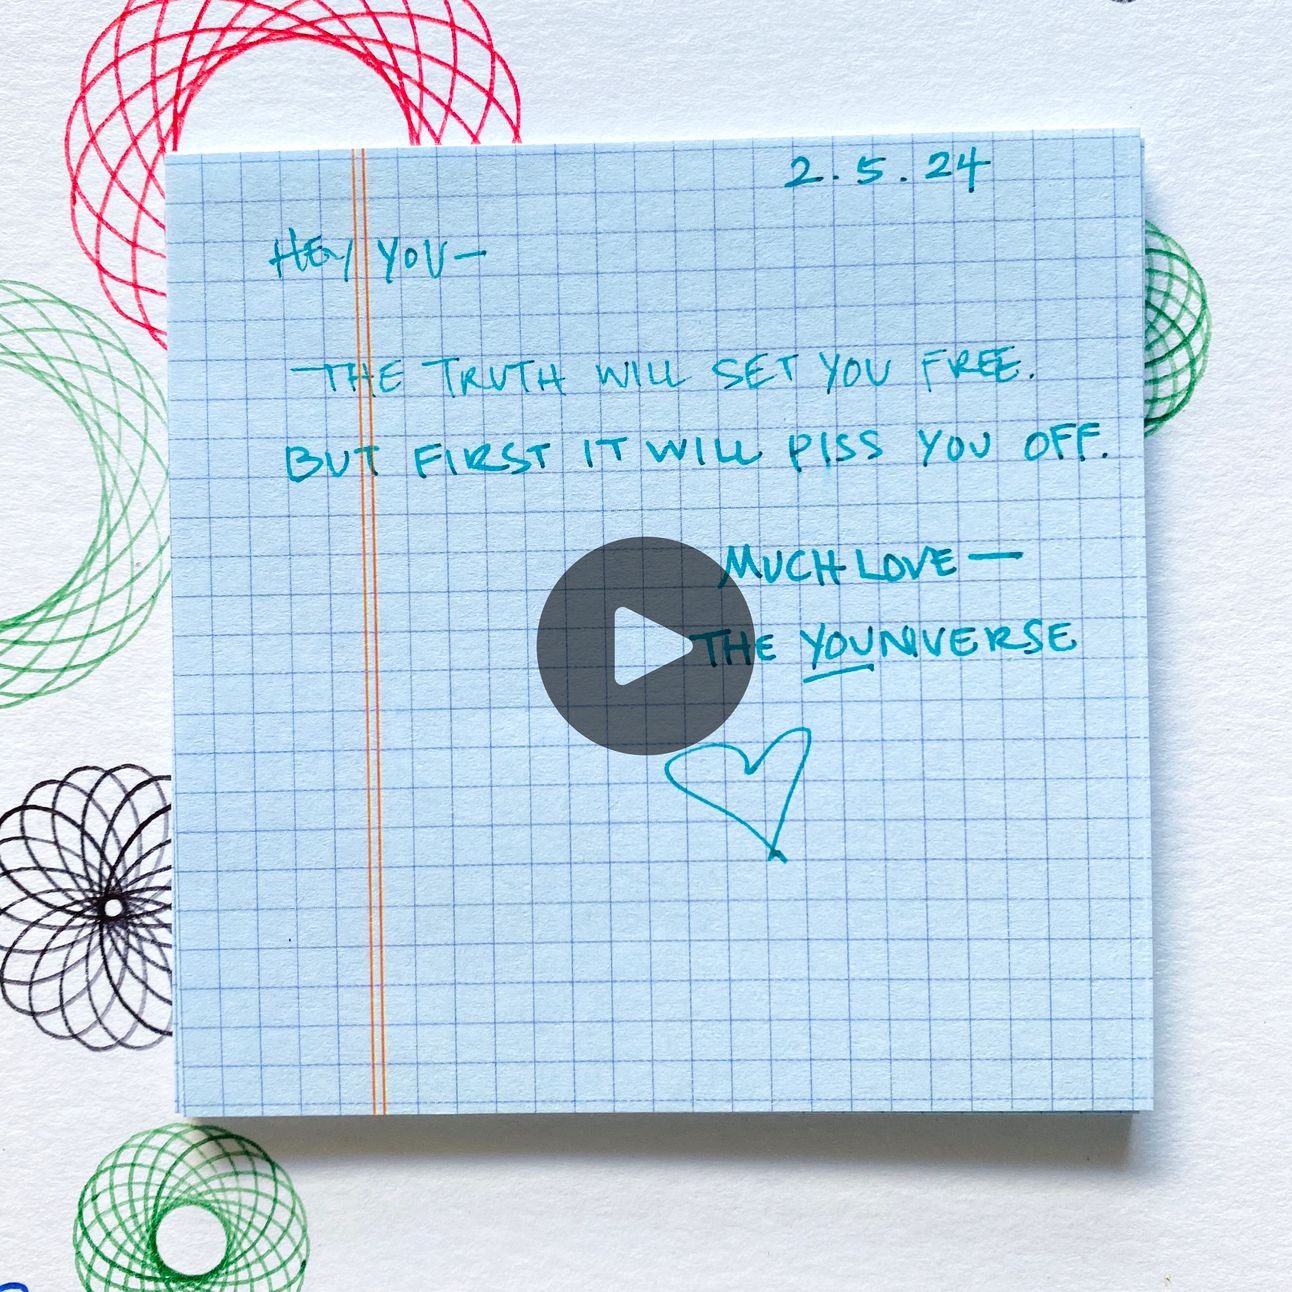 2.5.24
HEY YOU—
THE TRUTH WILL SET YOU FREE.
BUT FIRST IT WILL PISS YOU OFF.
MUCH LOVE—
THE YOUNIVERSE